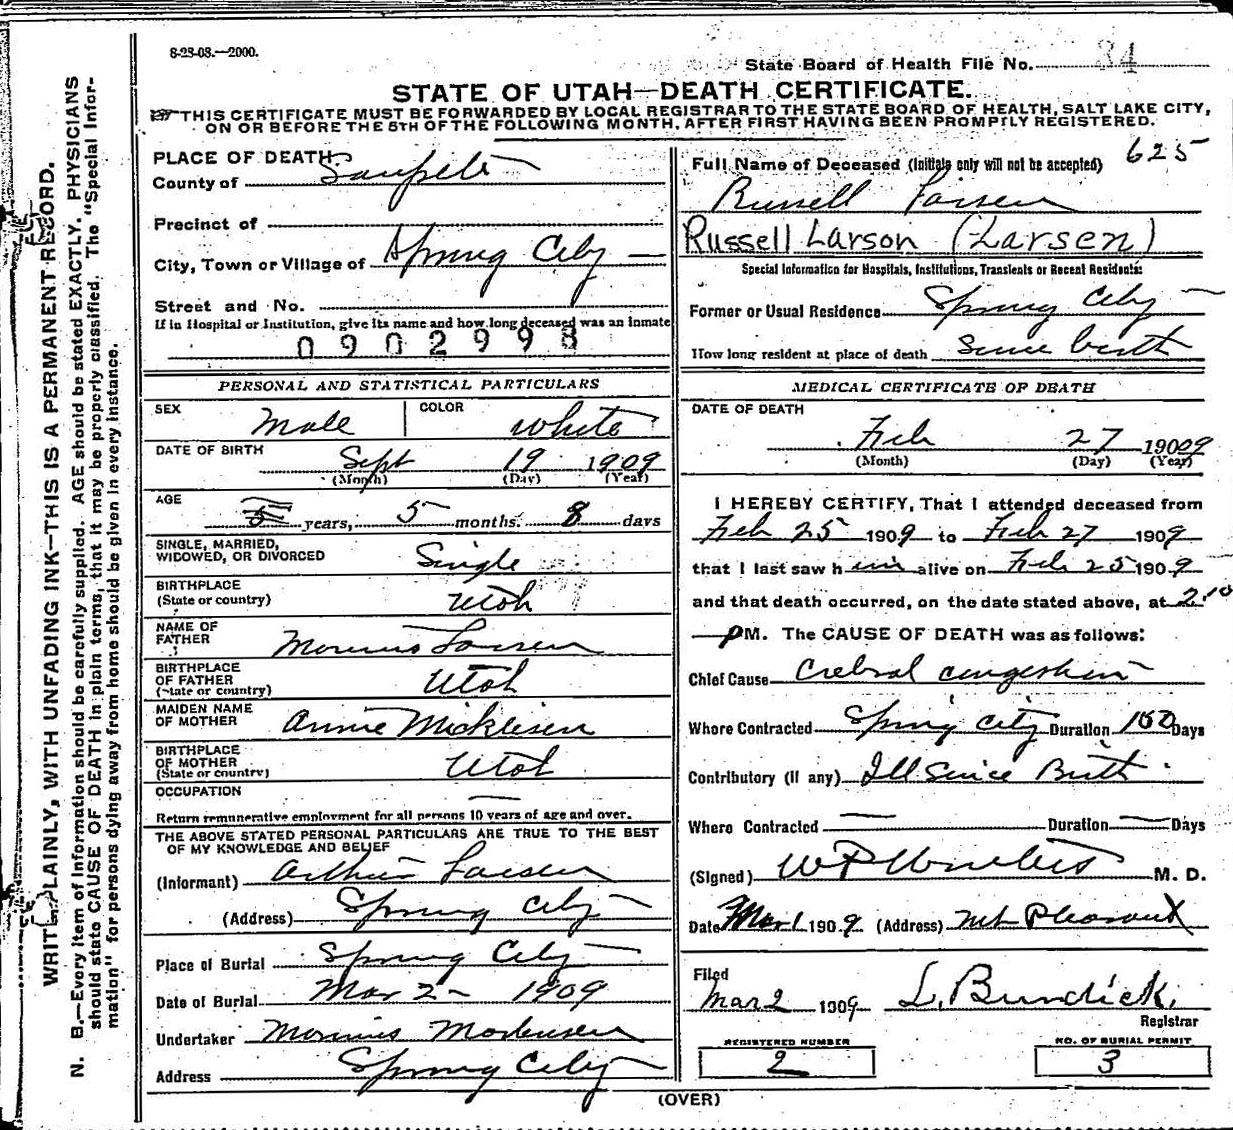 8-23-08.—2000.
State Board of Health File No. 34
STATE OF UTAH—DEATH CERTIFICATE.
THIS CERTIFICATE MUST BE FORWARDED BY LOCAL REGISTRAR TO THE STATE BOARD OF HEALTH, SALT LAKE CITY,
ON OR BEFORE THE 5TH OF THE FOLLOWING MONTH, AFTER FIRST HAVING BEEN PROMPTLY REGISTERED.
WRITE PLAINLY, WITH UNFADING INK—THIS IS A PERMANENT RECORD.
N. B.—Every item of information should be carefully supplied. AGE should be stated EXACTLY. PHYSICIANS
should state CAUSE OF DEATH in plain terms, that it may be properly classified. The "Special Infor-
mation" for persons dying away from home should be given in every instance.
PLACE OF DEATH
County of Sanpete
Precinct of
City, Town or Village of Spring City
Street and No.
If in Hospital or Institution, give its name and how long deceased was an inmate
0902998
PERSONAL AND STATISTICAL PARTICULARS
SEX Male COLOR White
DATE OF BIRTH Sept 19 1909
(Month) (Day) (Year)
AGE 5 years, 5 months. 8 days
SINGLE, MARRIED,
WIDOWED, OR DIVORCED Single
BIRTHPLACE
(State or country) Utah
NAME OF
FATHER Larsen
BIRTHPLACE
OF FATHER
(State or country) Utah
MAIDEN NAME
OF MOTHER Annie Micklesen
BIRTHPLACE
OF MOTHER
(State or country) Utah
OCCUPATION
Return remunerative employment for all persons 10 years of age and over.
THE ABOVE STATED PERSONAL PARTICULARS ARE TRUE TO THE BEST
OF MY KNOWLEDGE AND BELIEF
(Informant) Arthur Larsen
(Address) Spring City
Place of Burial Spring City
Date of Burial Mar 2 - 1909
Undertaker Mortensen
Address Spring City
Full Name of Deceased (Initials only will not be accepted) 625
Russell Larsen
Russell Larson (Larsen)
Special Information for Hospitals, Institutions, Transients or Recent Residents:
Former or Usual Residence Spring City
How long resident at place of death Since birth
MEDICAL CERTIFICATE OF DEATH
DATE OF DEATH
Feb 27 19009
(Month) (Day) (Year)
I HEREBY CERTIFY, That I attended deceased from
Feb 25 1909 to Feb 27 1909
that I last saw him alive on Feb 25 1909
and that death occurred, on the date stated above, at 2.10
PM. The CAUSE OF DEATH was as follows:
Chief Cause Crebral congestion
Where Contracted Spring City Duration 150 Days
Contributory (If any) Ill Since Birth
Where Contracted Duration Days
(Signed) M. D.
Date Mar 1 1909 (Address) Mt Pleasant
Filed
Mar 2 1909 L. Burdick.
Registrar
REGISTERED NUMBER
2
NO. OF BURIAL PERMIT
3
(OVER)